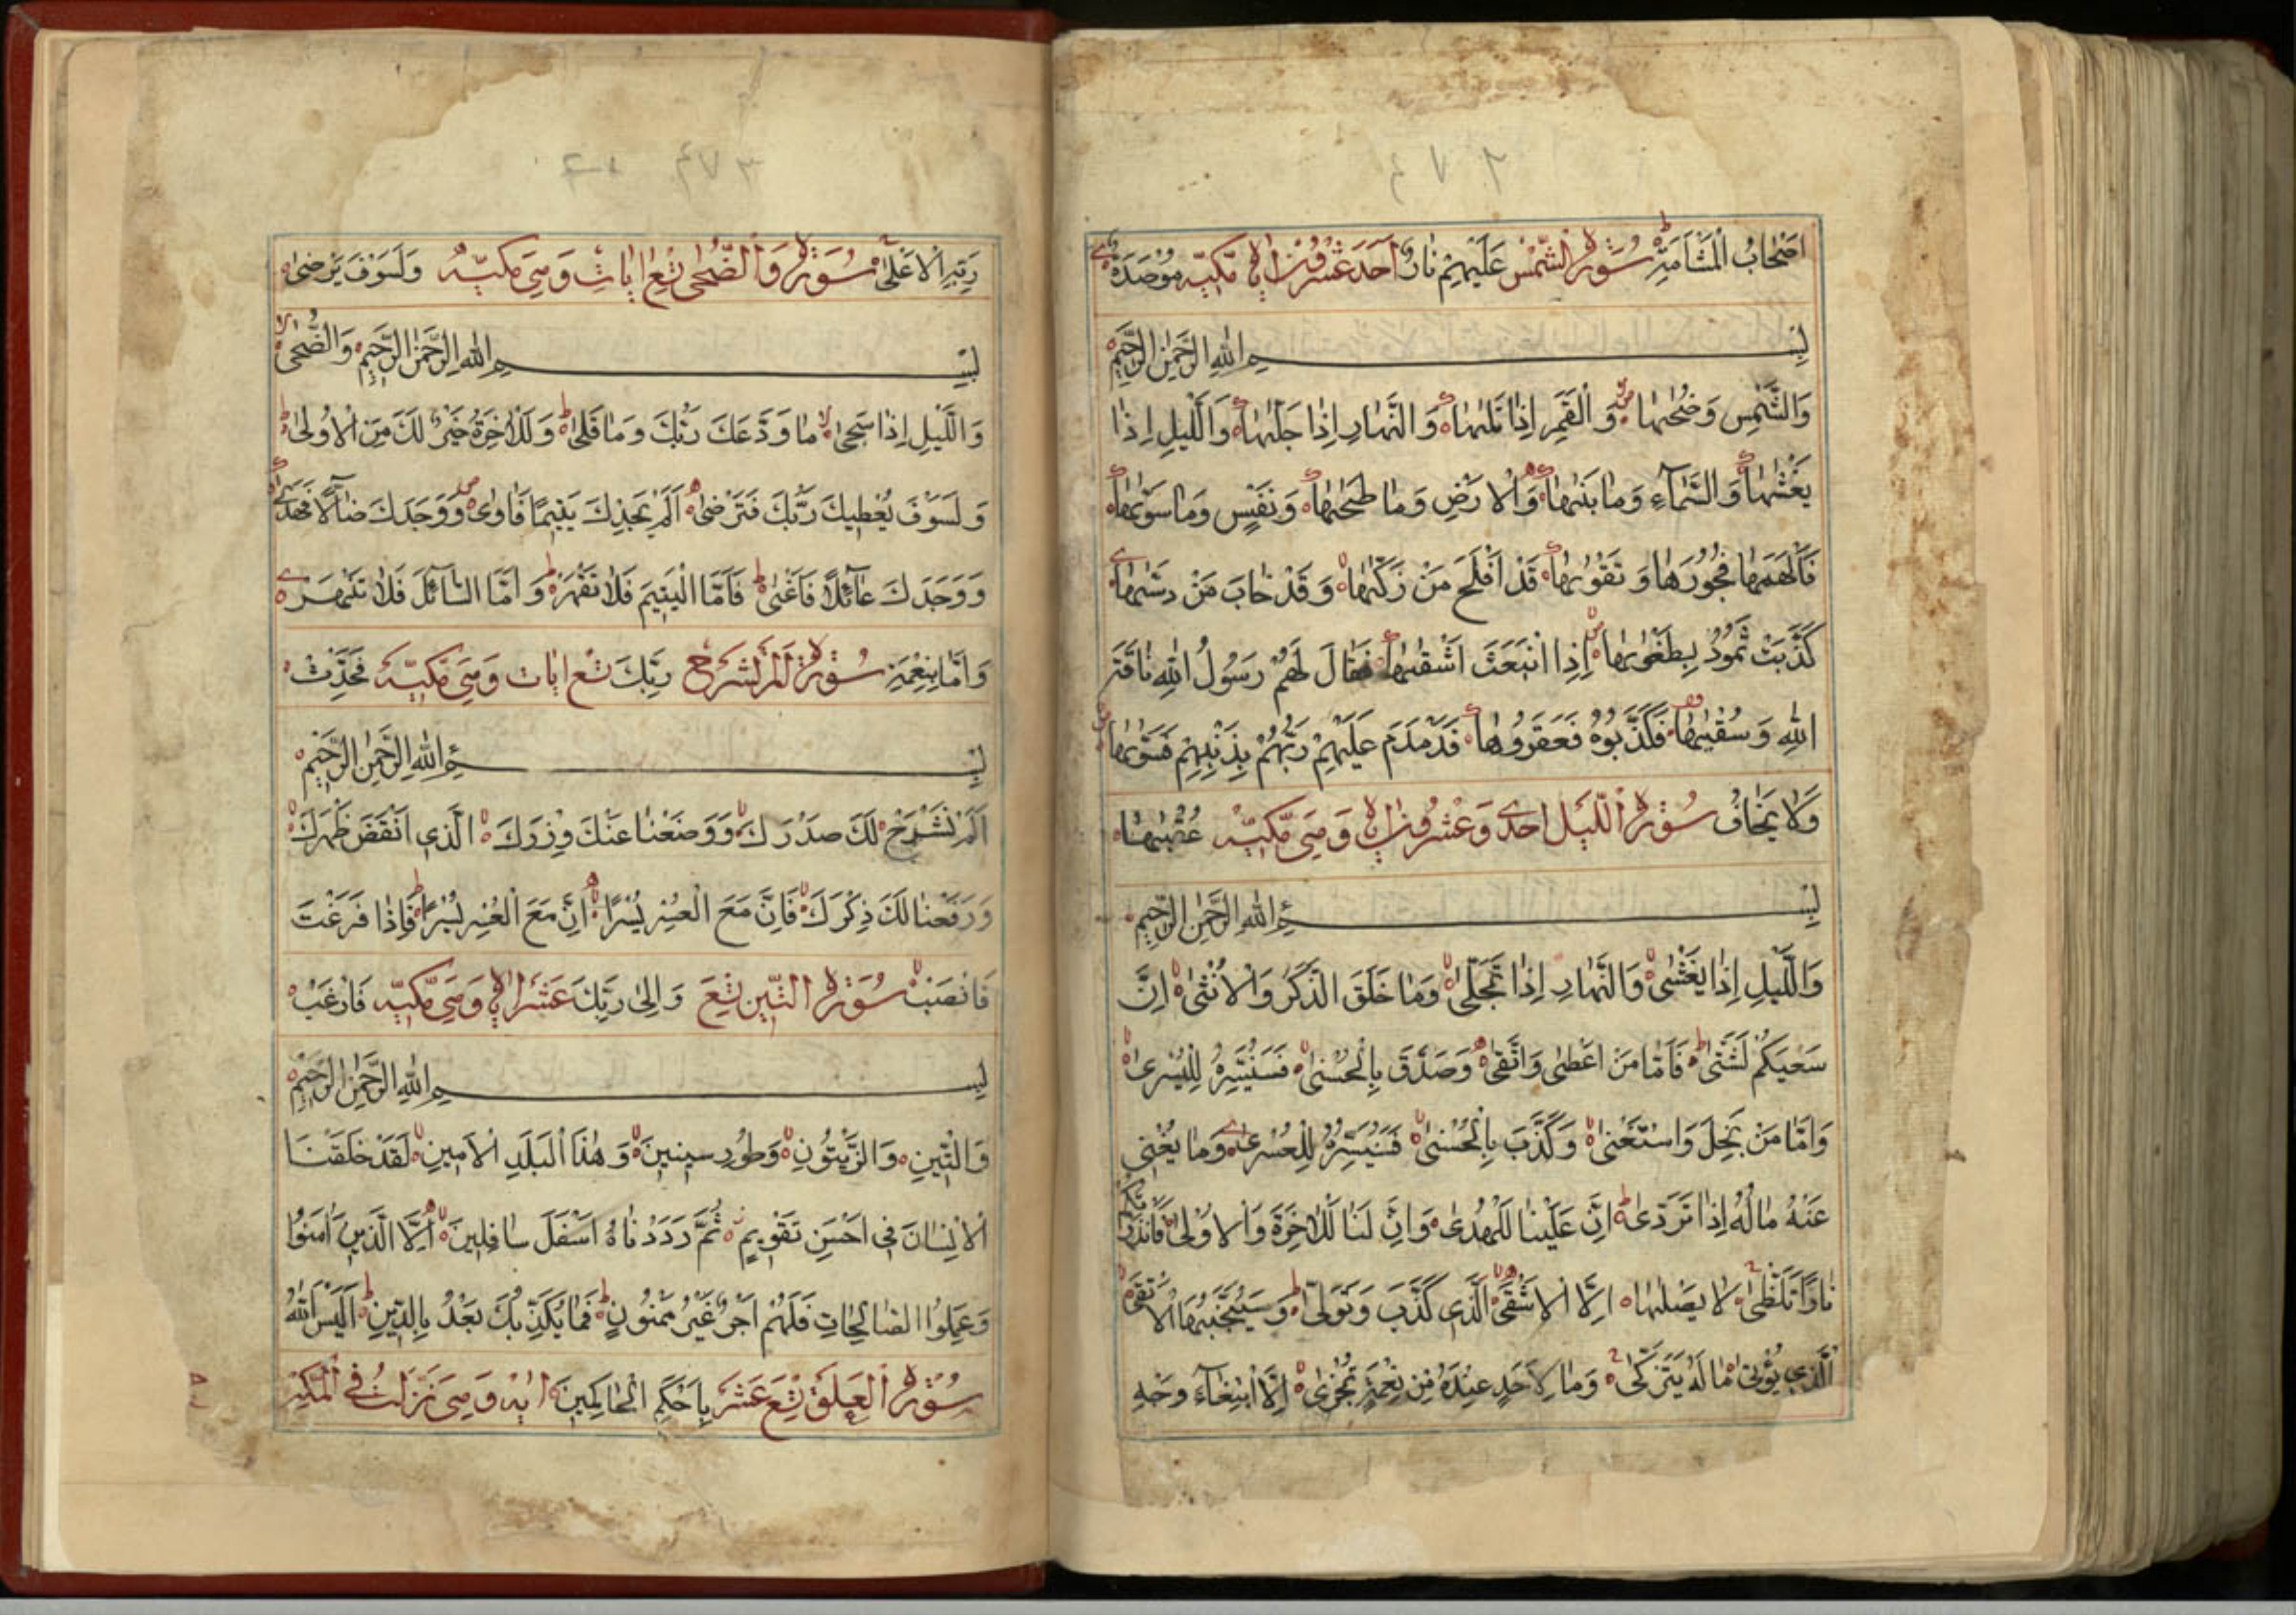 اَصْحَابُ الْمَشْأَمَةِ سُوْرَةُ الشَّمْسِ عَلَيْهِمْ نَارٌ اَحَدَ عَشَرَ مَكِّيَّه مُوْصَدَةٌ
بِسْمِ اللهِ الرَّحْمٰنِ الرَّحِيْمِ
وَالشَّمْسِ وَضُحٰىهَا وَالْقَمَرِ اِذَا تَلٰىهَا وَالنَّهَارِ اِذَا جَلّٰىهَا وَالَّيْلِ اِذَا
يَغْشٰىهَا وَالسَّمَآءِ وَمَا بَنٰىهَا وَالْاَرْضِ وَمَا طَحٰىهَا وَنَفْسٍ وَمَا سَوّٰىهَا
فَاَلْهَمَهَا فُجُوْرَهَا وَتَقْوٰىهَا قَدْ اَفْلَحَ مَنْ زَكّٰىهَا وَقَدْ خَابَ مَنْ دَسّٰىهَا
كَذَّبَتْ ثَمُوْدُ بِطَغْوٰىهَا اِذِ انْبَعَثَ اَشْقٰىهَا فَقَالَ لَهُمْ رَسُوْلُ اللهِ نَاقَةَ
اللهِ وَسُقْيٰهَا فَكَذَّبُوْهُ فَعَقَرُوْهَا فَدَمْدَمَ عَلَيْهِمْ رَبُّهُمْ بِذَنْبِهِمْ فَسَوّٰىهَا
وَلَا يَخَافُ سُوْرَةُ اللَّيْلِ اِحْدٰى وَعِشْرُوْنَ اٰيَة وَهِيَ مَكِّيَّه عُقْبٰىهَا
بِسْمِ اللهِ الرَّحْمٰنِ الرَّحِيْمِ
وَاللَّيْلِ اِذَا يَغْشٰى وَالنَّهَارِ اِذَا تَجَلّٰى وَمَا خَلَقَ الذَّكَرَ وَالْاُنْثٰى اِنَّ
سَعْيَكُمْ لَشَتّٰى فَاَمَّا مَنْ اَعْطٰى وَاتَّقٰى وَصَدَّقَ بِالْحُسْنٰى فَسَنُيَسِّرُهُ لِلْيُسْرٰى
وَاَمَّا مَنْ بَخِلَ وَاسْتَغْنٰى وَكَذَّبَ بِالْحُسْنٰى فَسَنُيَسِّرُهُ لِلْعُسْرٰى وَمَا يُغْنِي
عَنْهُ مَالُهُ اِذَا تَرَدّٰى اِنَّ عَلَيْنَا لَلْهُدٰى وَاِنَّ لَنَا لَلْاٰخِرَةَ وَالْاُوْلٰى فَاَنْذَرْتُكُمْ
نَارًا تَلَظّٰى لَا يَصْلٰىهَا اِلَّا الْاَشْقَى الَّذِي كَذَّبَ وَتَوَلّٰى وَسَيُجَنَّبُهَا الْاَتْقَى
الَّذِي يُؤْتِى مَالَهُ يَتَزَكّٰى وَمَا لِاَحَدٍ عِنْدَهُ مِنْ نِعْمَةٍ تُجْزٰى اِلَّا ابْتِغَآءَ وَجْهِ
رَبِّهِ الْاَعْلٰى سُوْرَةُ وَالضُّحٰى اٰيَاتٍ وَهِيَ مَكِّيَّه وَلَسَوْفَ يَرْضٰى
بِسْمِ اللهِ الرَّحْمٰنِ الرَّحِيْمِ وَالضُّحٰى
وَاللَّيْلِ اِذَا سَجٰى مَا وَدَّعَكَ رَبُّكَ وَمَا قَلٰى وَلَلْاٰخِرَةُ خَيْرٌ لَكَ مِنَ الْاُوْلٰى
وَلَسَوْفَ يُعْطِيكَ رَبُّكَ فَتَرْضٰى اَلَمْ يَجِدْكَ يَتِيْمًا فَاٰوٰى وَوَجَدَكَ ضَآلًّا فَهَدٰى
وَوَجَدَكَ عَآئِلًا فَاَغْنٰى فَاَمَّا الْيَتِيْمَ فَلَا تَقْهَرْ وَاَمَّا السَّآئِلَ فَلَا تَنْهَرْ
وَاَمَّا بِنِعْمَةِ سُوْرَةُ اَلَمْ نَشْرَحْ رَبِّكَ اٰيَات وَهِيَ مَكِّيَّه فَحَدِّثْ
بِسْمِ اللهِ الرَّحْمٰنِ الرَّحِيْمِ
اَلَمْ نَشْرَحْ لَكَ صَدْرَكَ وَوَضَعْنَا عَنْكَ وِزْرَكَ الَّذِي اَنْقَضَ ظَهْرَكَ
وَرَفَعْنَا لَكَ ذِكْرَكَ فَاِنَّ مَعَ الْعُسْرِ يُسْرًا اِنَّ مَعَ الْعُسْرِ يُسْرًا فَاِذَا فَرَغْتَ
فَانْصَبْ سُوْرَةُ التِّيْنِ وَاِلٰى رَبِّكَ عَشَر وَهِيَ مَكِّيَّه فَارْغَبْ
بِسْمِ اللهِ الرَّحْمٰنِ الرَّحِيْمِ
وَالتِّيْنِ وَالزَّيْتُوْنِ وَطُوْرِ سِيْنِيْنَ وَهٰذَا الْبَلَدِ الْاَمِيْنِ لَقَدْ خَلَقْنَا
الْاِنْسَانَ فِي اَحْسَنِ تَقْوِيْمٍ ثُمَّ رَدَدْنَاهُ اَسْفَلَ سَافِلِيْنَ اِلَّا الَّذِيْنَ اٰمَنُوْا
وَعَمِلُوا الصَّالِحَاتِ فَلَهُمْ اَجْرٌ غَيْرُ مَمْنُوْنٍ فَمَا يُكَذِّبُكَ بَعْدُ بِالدِّيْنِ اَلَيْسَ اللهُ
سُوْرَةُ الْعَلَقِ تِسْعَ عَشَرَ بِاَحْكَمِ الْحَاكِمِيْنَ اٰيَة وَهِيَ نَزَلَتْ فِي الْمَكَّة